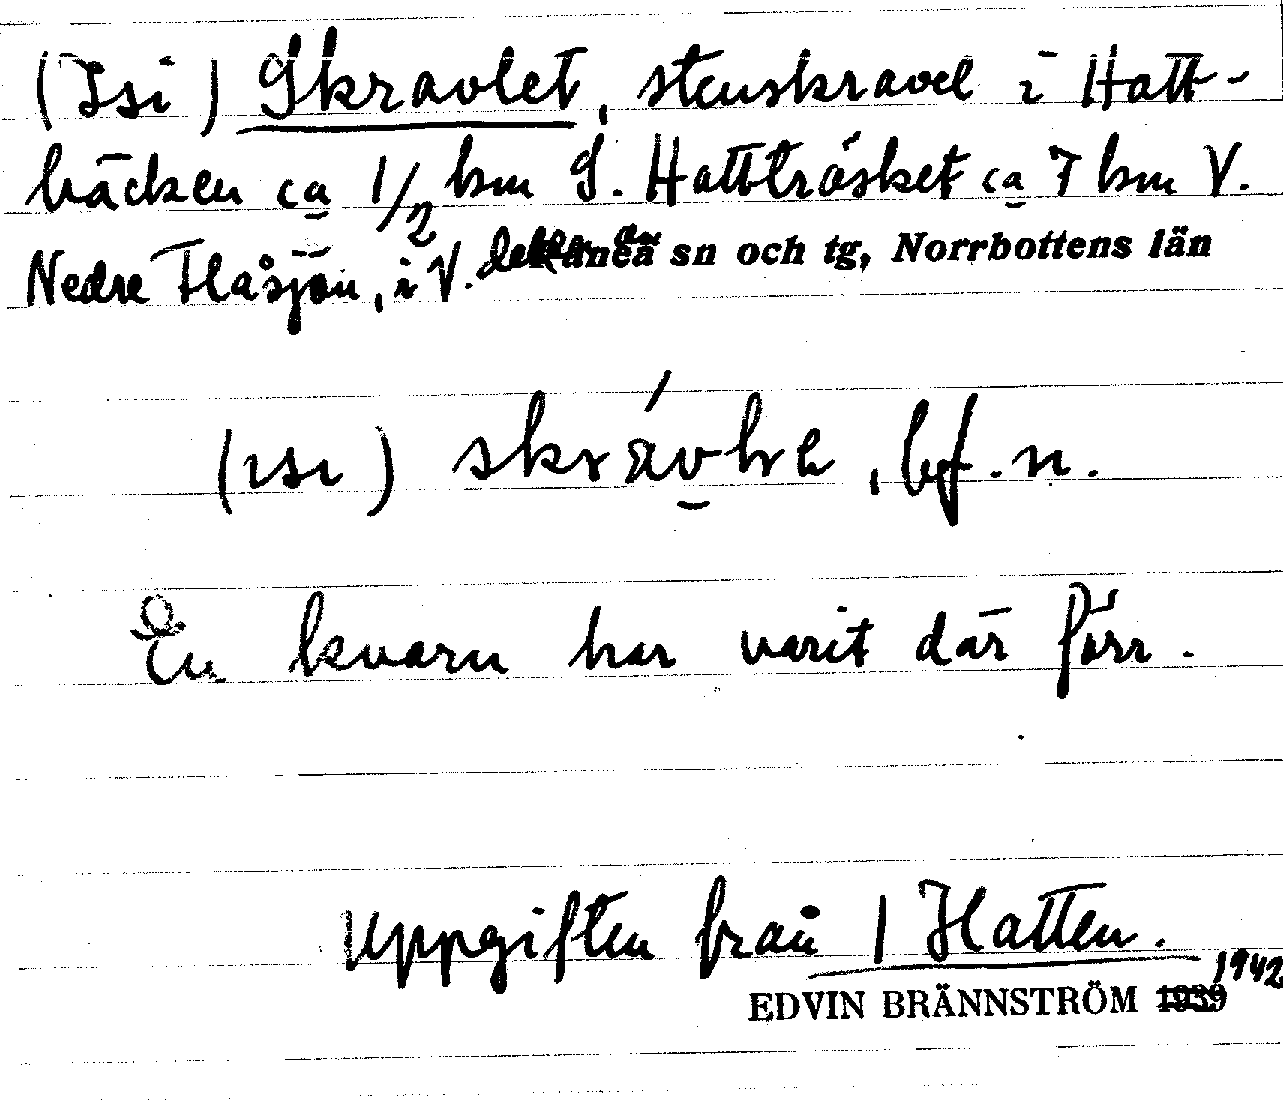 (Isi) Skravlet, stenskravel i Hatt-
bäcken ca 1/2 km S. Hattträsket ca 7 km V.
Nedre Flåsjön, i V. delen av sn och tg, Norrbottens län
(ısı) skrávle, bf. n.
En kvarn har varit där förr.
Uppgiften från 1 Hatten.
1942
EDVIN BRÄNNSTRÖM 1939